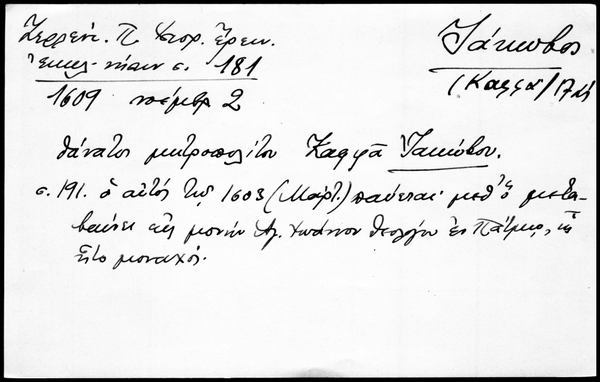 Ζερλέντ. Π. Ἱστορ. Ἔρευν.
Ἐκκλ. νήσων σ. 181
1609 νοέμβρ 2
Ἰάκωβος
(Καφφᾶ)
θάνατος μητροπολίτου Καφφᾶ Ἰακώβου.
σ. 191. ὁ αὐτὸς τῷ 1603 (Μάρτ.) παύεται μεθ' ὃ μετα-
βαίνει εἰς μονὴν Ἁγ. Ἰωάννου Θεολόγου ἐν Πάτμῳ,
ἦτο μοναχός.